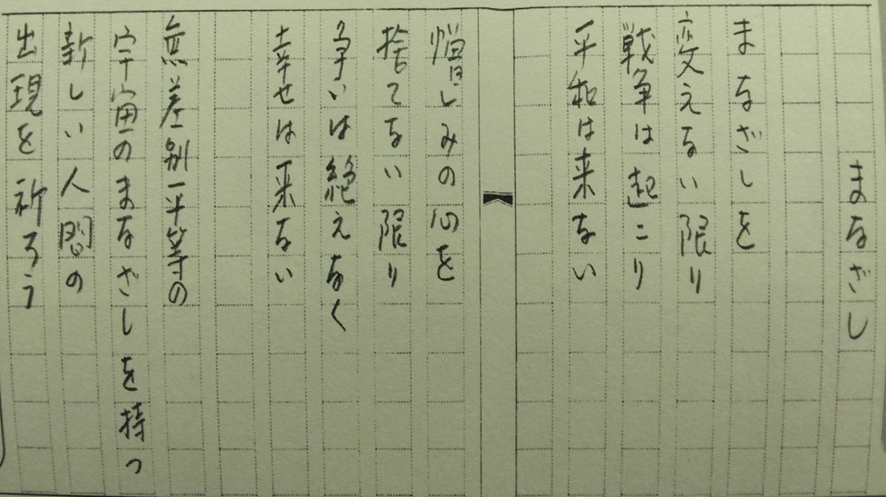 まなざし
まなざしを
変えない限り
戦争は起こり
平和は来ない
憎しみの心を
捨てない限り
争いは絶えなく
幸せは来ない
無差別平等の
宇宙のまなざしを持つ
新しい人間の
出現を祈ろう